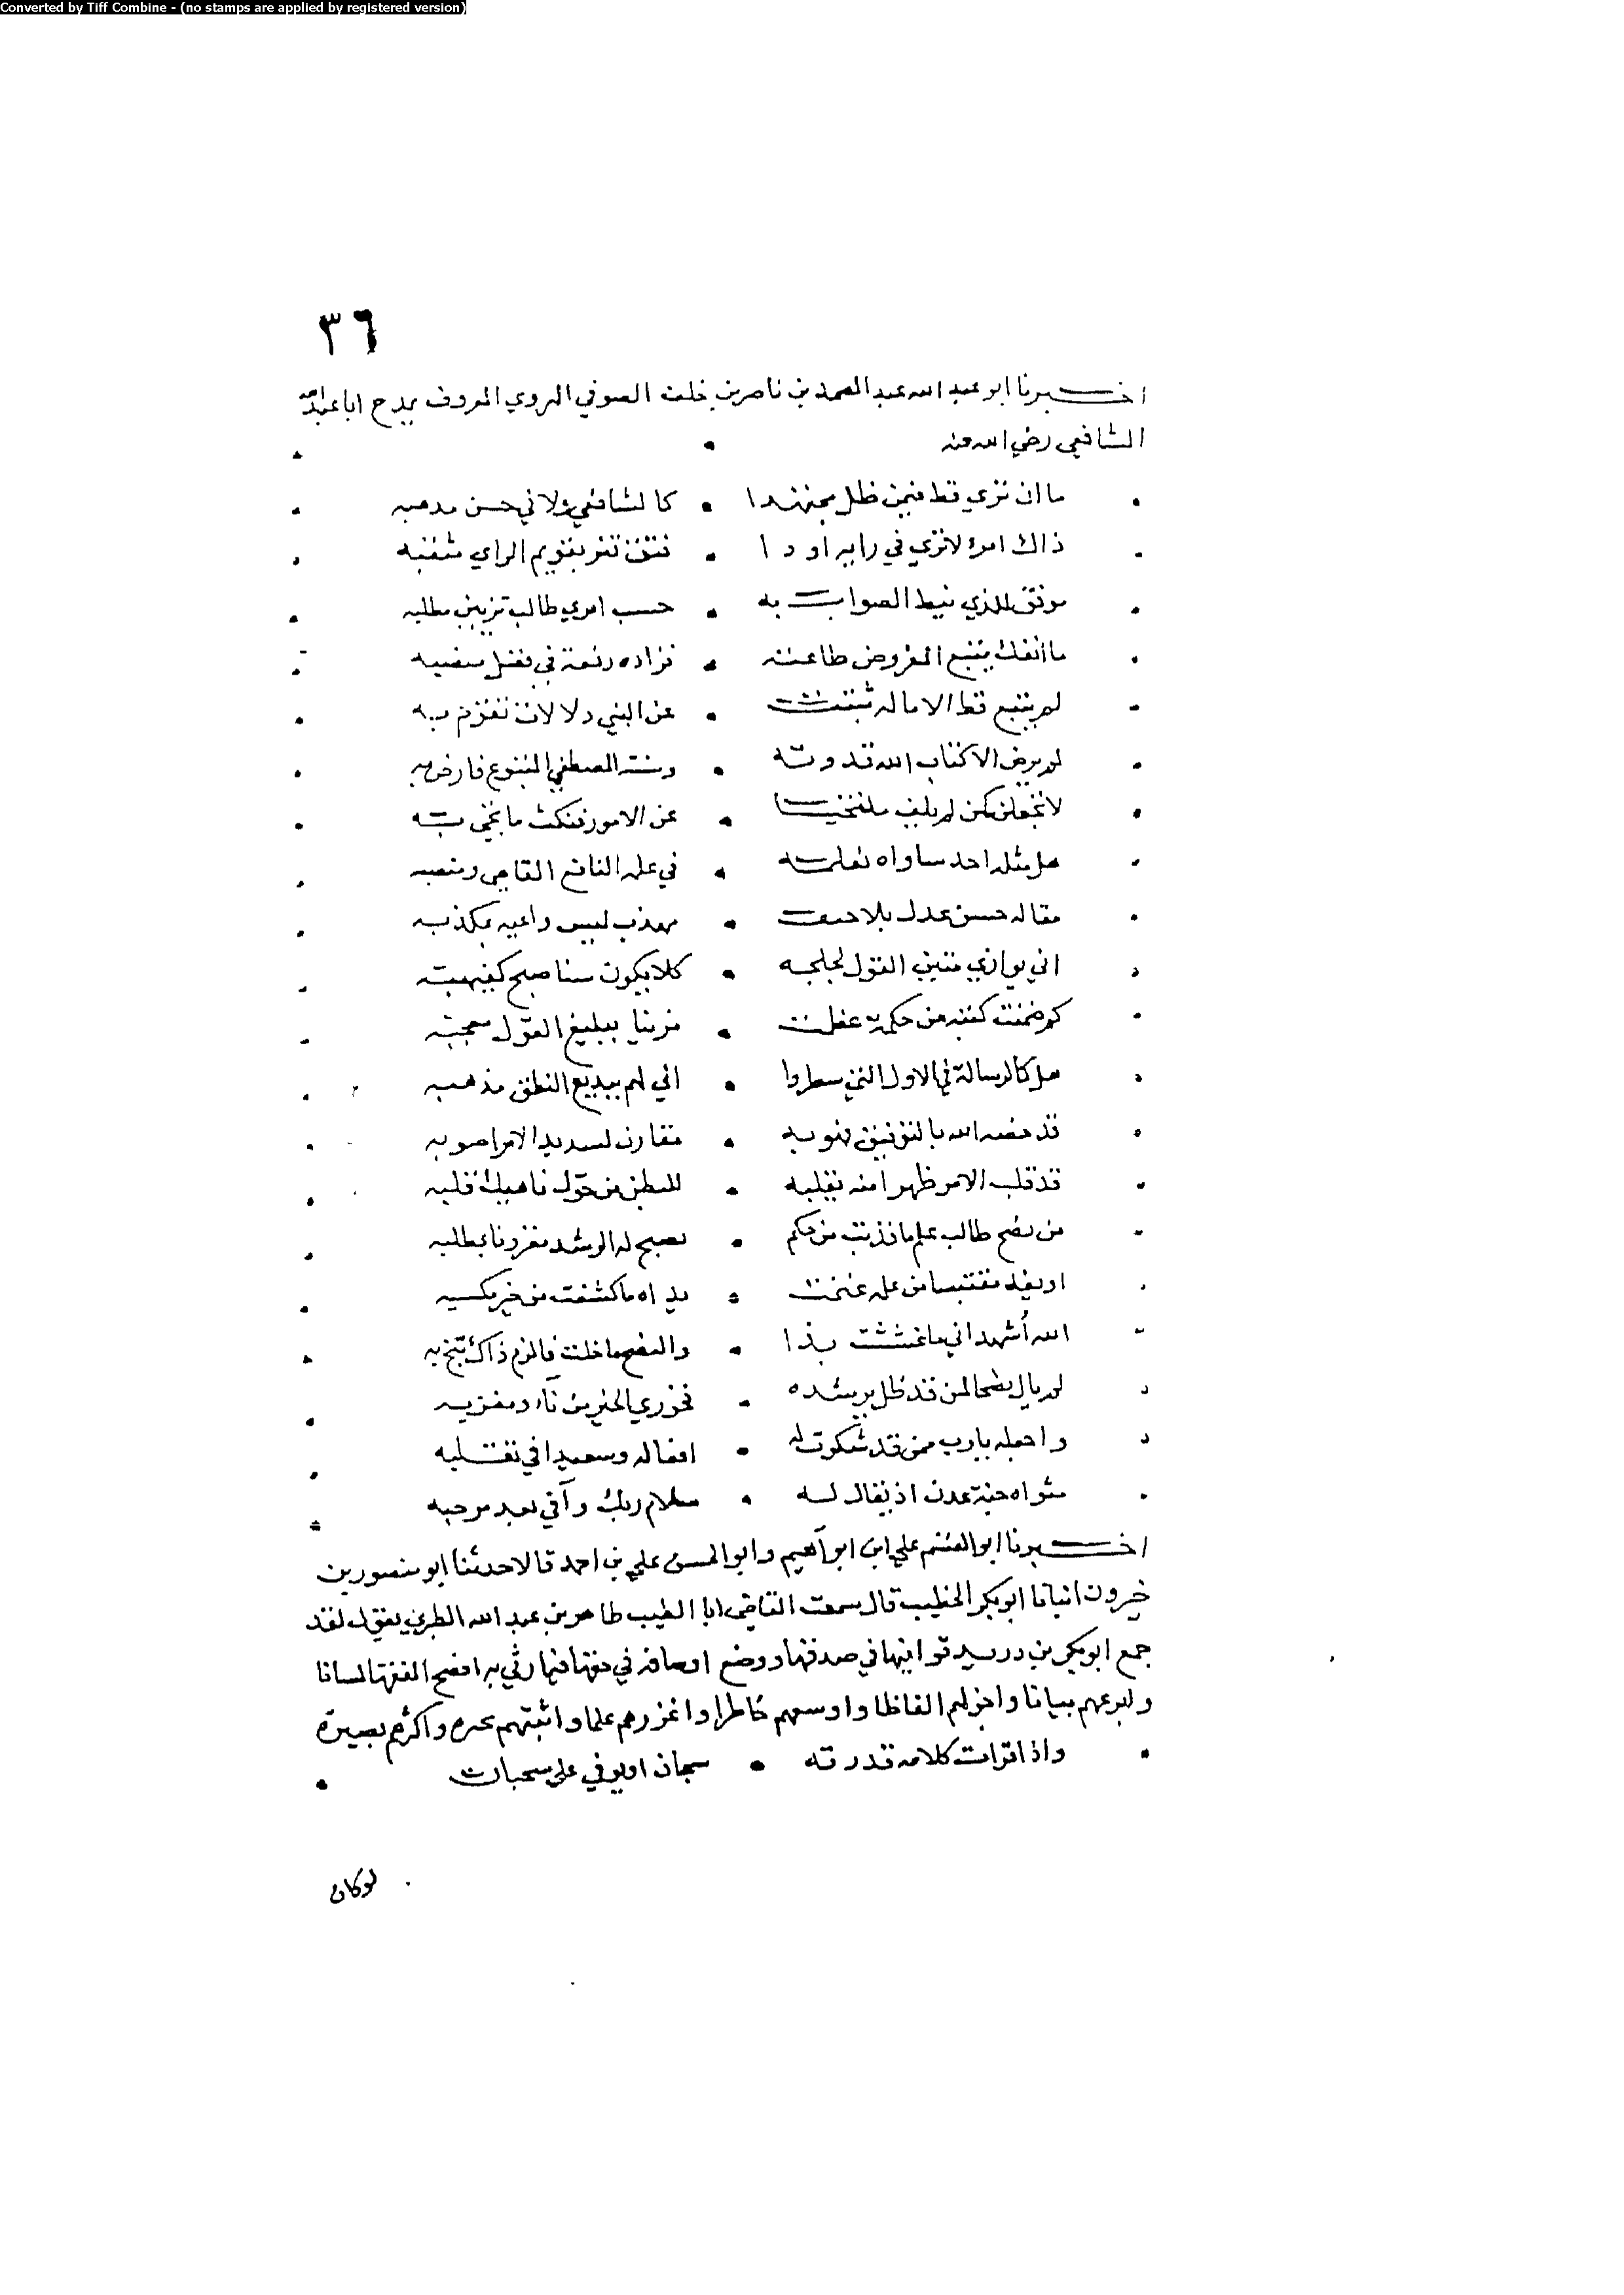 Converted by Tiff Combine - (no stamps are applied by registered version)
٣٦
اخبرنا ابو عبد الله عبد الصمد بن ناصر بن خلف الصوفي الهروي المعروف يمدح ابا عبد الله
الشافعي رضي الله عنه
ما ان تري قط فيمن ظل مجتهدا كالشافعي ولا في حسن مذهبه
ذاك امرؤ لا تري في رايه اودا
موفق للذي نيط الصواب به حسب امري طالب تزيين مطلبه
ما انفك يتبع المفروض طاعته
لم يتبع قط الا ما له ثبتت عن النبي دلالات تقوم به
لم يرض الا كتاب الله قدوته وسنة المصطفي المتبوع فارض به
لا تجعلن كمن لم يلف عن الامور
هل مثله احد ساواه نعلمه في علمه النافع القاصي ومنصبه
مقاله حسن عدل بلا حيف مهذب ليس واعيه بمكذبه
اني يوازي متين القول لجلجه كلا يكون سنا صبح كغيهبه
كم ضمنت كتبه من حكمة عقلت ببليغ القول معجبه
هل كالرسالة في الاول التي سطروا اني لهم ببديع النطق مذهبه
قد خصه الله بالتوفيق فهو به مقارن لسديد الامر اصوبه
قد قلب الامر ظهرا منه يقلبه للبطن من حول ناهيك قلبه
من يضح طالب علم يصبح له الرشد مقرونا بمطلبه
او يغد مقتبسا من علمه غنمت يداه ما كشفت من خير مكسبه
الله أشهد اني ما غششت بذا والنصح ما خلت فالزم ذاك تنج به
لم يال نصحا لمن قد ظل يرشده
واجعله يا رب ممن قد شكرت له افعاله وسعيدا في تقلبه
مثواه جنة عدن اذ يقال له سلام ربك وآتي بعد مرحبه
اخبرنا ابو القسم علي ابن ابراهيم وابو الحسن علي بن احمد قالا حدثنا ابو منصور بن
خيرون انبانا ابو بكر الخطيب قال سمعت القاضي ابا الطيب طاهر بن عبد الله الطبري يقول لقد
جمع ابو بكر بن دريد قوافيها في صدفها ووضع اوصافه في حقها فيما رثي به افصح الفقها لسانا
وابرعهم بيانا واجزلهم الفاظا واوسعهم خاطرا واغزرهم علما واثبتهم واكثرهم بصيرة
واذا قرات كلامه قدرته سحبان او يوفي علي سحبان
لوكان